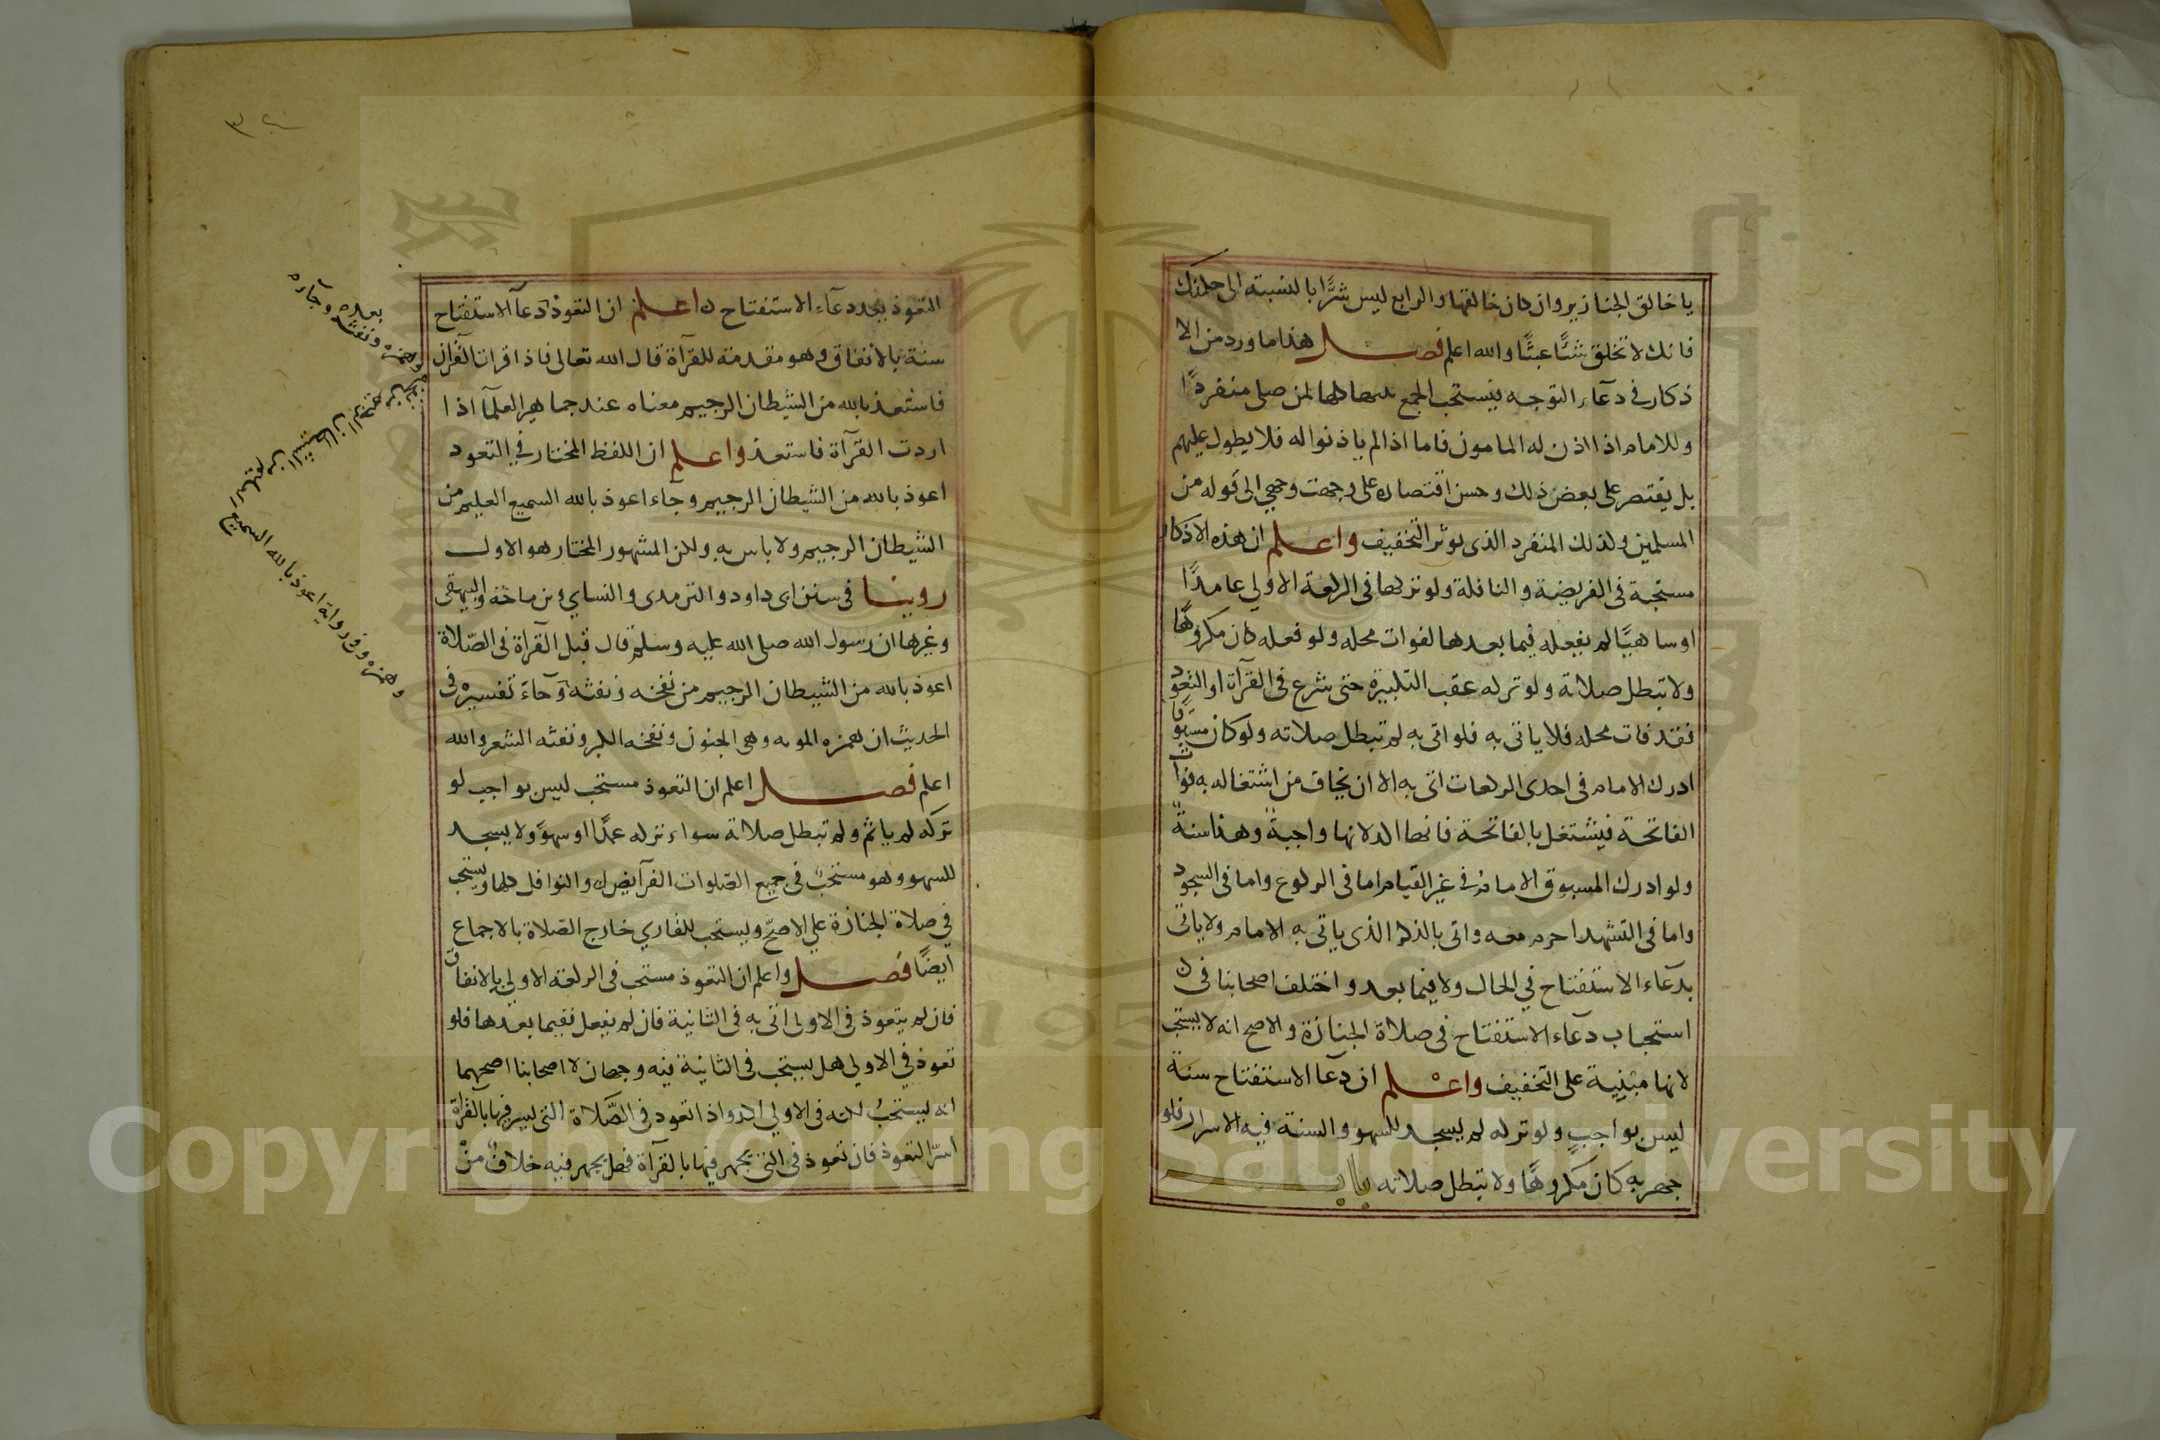 يا خالق الخنازير وان كان خالقها والرابع ليس شرًا بالنسبة الى حكمتك
فانك لا تخلق شئًا عبثًا والله اعلم فصل هذا ما ورد من الا
ذكار في دعاء التوجه فيستحب الجمع بينها كلها لمن صلى منفردًا
وللامام اذا اذن له المامون فاما اذا لم ياذنوا له فلا يطول عليهم
بل يقتصر على بعض ذلك وحسن اقتصاره على وجهت وجهي الى قوله من
المسلمين وكذلك المنفرد الذى يوثر التخفيف واعلم ان هذه الاذكار
مستحبة فى الفريضة والنافلة ولو تركها فى الركعة الاولي عامدًا
او ساهيًا لم يفعله فيما بعدها لفوات محله ولو فعله كان مكروهًا
ولا تبطل صلاته ولو تركه عقب التكبيرة حتى شرع فى القرآة او التعوذ
فقد فات محله فلا ياتى به فلو اتى به لم تبطل صلاته ولو كان مسبوقًا
ادرك الامام فى احدى الركعات اتى به الا ان يخاف من اشتغاله به فوات
الفاتحة فيشتغل بالفاتحة فانها اكد لانها واجبة وهذا سنة
ولو ادرك المسبوق الامام في غير القيام اما فى الركوع واما فى السجود
واما فى التشهد احرم معه واتى بالذكر الذى ياتى به الامام ولا ياتى
بدعاء الاستفتاح في الحال ولا فيما بعد واختلف اصحابنا فى
استحباب دعاء الاستفتاح فى صلاة الجنازة والاصح انه لا يستحب
لانها مبنية على التخفيف واعلم ان دعا الاستفتاح سنة
ليس بواجب ولو تركه لم يسجد للسهو والسنة فيه الاسرار فلو
جهر به كان مكروهًا ولا تبطل صلاته باب
التعوذ بعد دعاء الاستفتاح اعلم ان التعوذ دعا الاستفتاح
سنة بالاتفاق وهو مقدمة للقرآة قال الله تعالى فاذا قرات القرآن
فاستعذ بالله من الشيطان الرجيم معناه عند جماهير العلمآ اذا
اردت القرآة فاستعذ واعلم ان اللفظ المختار في التعوذ
اعوذ بالله من الشيطان الرجيم وجاء اعوذ بالله السميع العليم من
الشيطان الرجيم ولا باس به ولكن المشهور المختار هو الاول
روينا فى سنن ابى داود والترمدى والنساي وبن ماجة والبيهقى
وغيرها ان رسول الله صلى الله عليه وسلم قال قبل القرآة فى الصلاة
اعوذ بالله من الشيطان الرجيم من نفخه ونفثه وجاء تفسيره فى
الحديث ان همزه الموته وهي الجنون ونفخه الكبر ونفثه الشعر والله
اعلم فصل اعلم ان التعوذ مستحب ليس بواجب لو
تركه لم ياثم ولم تبطل صلاته سواء تركه عمدًا او سهوًا ولا يسجد
للسهو وهو مستحب فى جميع الصلوات الفرآيض والنوافل كلها ويستحب
في صلاة الجنازة علي الاصح ويستحب للقاري خارج الصلاة بالاجماع
ايضًا فصل واعلم ان التعوذ مستحب فى الركعة الاولي بالاتفاق
فان لم يتعوذ فى الاولى اتى به فى الثانية فان لم يفعل ففيما بعدها فلو
تعوذ في الاولي هل يستحب فى الثانية فيه وجهان لاصحابنا اصحهما
انه يستحب لكنه فى الاولي اكد واذا تعوذ فى الصلاة التى يسر فيها بالقرآة
اسر التعوذ فان تعوذ فى التى يجهر فيها بالقرآة فهل يجهر فيه خلاف من
وهمزه وفى رواية اعوذ بالله السميع العليم من الشيطان الرجيم
من همزه ونفخه ونفثه وجا
Copyright © King Saud University
1957